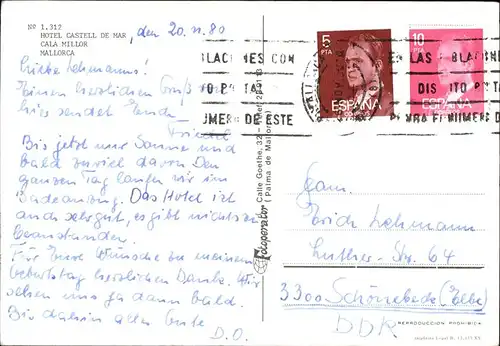 Nº 1.312
HOTEL CASTELL DE MAR
CALA MILLOR
MALLORCA
, den 20.11.80
Liebe Lehmanns!
Einen herzlichen Gruß von
hier sendet Euch
Bis jetzt nur Sonne und
bald zuviel davon. Den
ganzen Tag laufen wir im
Badeanzug. Das Hotel ist
auch sehr gut, es gibt nichts zu
beanstanden.
Für Eure Wünsche zu meinem
Geburtstag herzlichen Dank. Wir
sehen uns ja dann bald.
Bis dahin alles Gute
D.O.
Fotoperator
Calle Goethe, 32 -
(Palma de Mallorca)
BLACIONES CON
TO POSTAL
NUMERO DE ESTE
5
PTA
ESPAÑA
10
PTA
ESPAÑA
EN LAS POBLACIONES
DISTRITO POSTAL
PONGA EL NUMERO DE
Fam.
Erich Lehmann
Luther-Str. 64
3300 Schönebeck (Elbe)
DDR
REPRODUCCION PROHIBIDA